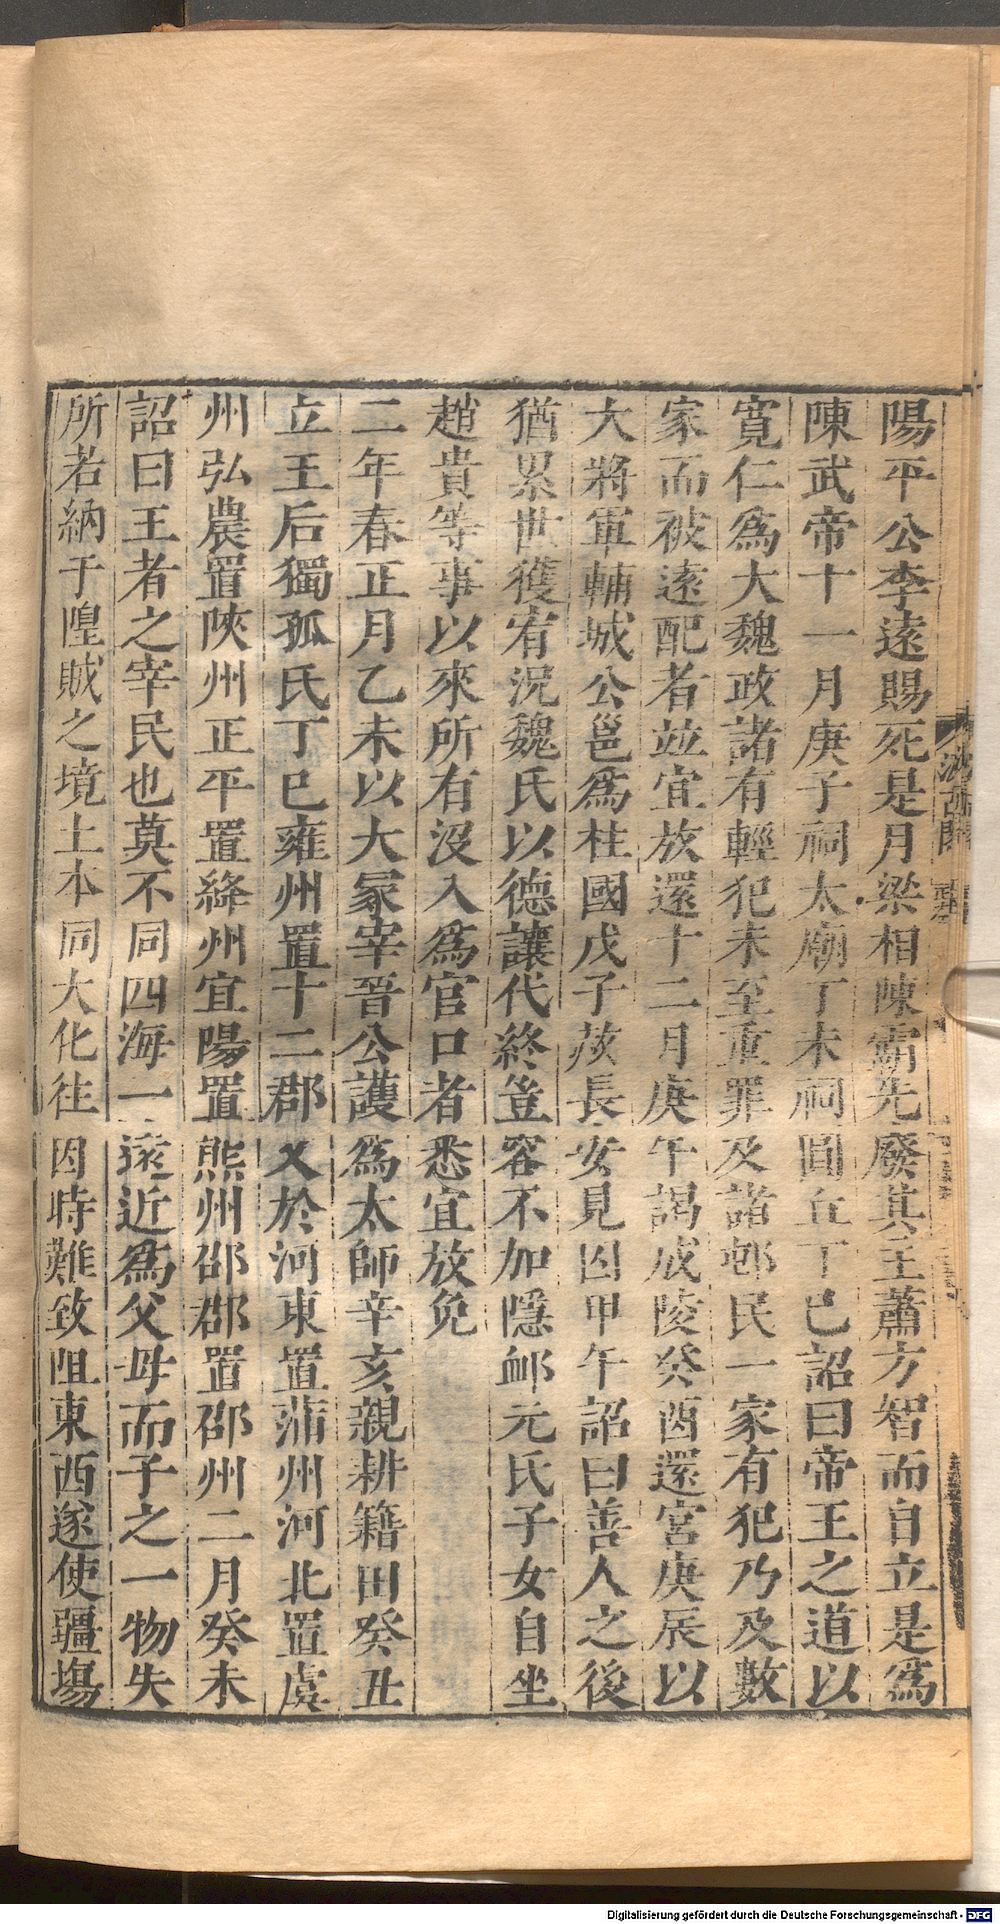 陽平公李遠賜死是月梁相陳霸先廢其主蕭方智而自立是爲
陳武帝十一月庚子祠太廟丁未祠圓丘丁巳詔曰帝王之道以
寬仁爲大魏政諸有輕犯未至重罪及諸邨民一家有犯乃及數
家而被遠配者並宜放還十二月庚午謁成陵癸酉還宮庚辰以
大將軍輔城公邕爲柱國戊子赦長安見囚甲午詔曰善人之後
猶累世獲宥況魏氏以德讓代終豈容不加隱卹元氏子女自坐
趙貴等事以來所有沒入爲官口者悉宜放免
二年春正月乙未以大冢宰晉公護爲太師辛亥親耕籍田癸丑
立王后獨孤氏丁巳雍州置十二郡又於河東置蒲州河北置虞
州弘農置陝州正平置絳州宜陽置熊州邵郡置邵州二月癸未
詔曰王者之宰民也莫不同四海一遠近爲父母而子之一物失
所若納于隍賊之境土本同大化往因時難致阻東西遂使疆場
汲古閣
Digitalisierung gefördert durch die Deutsche Forschungsgemeinschaft - DFG